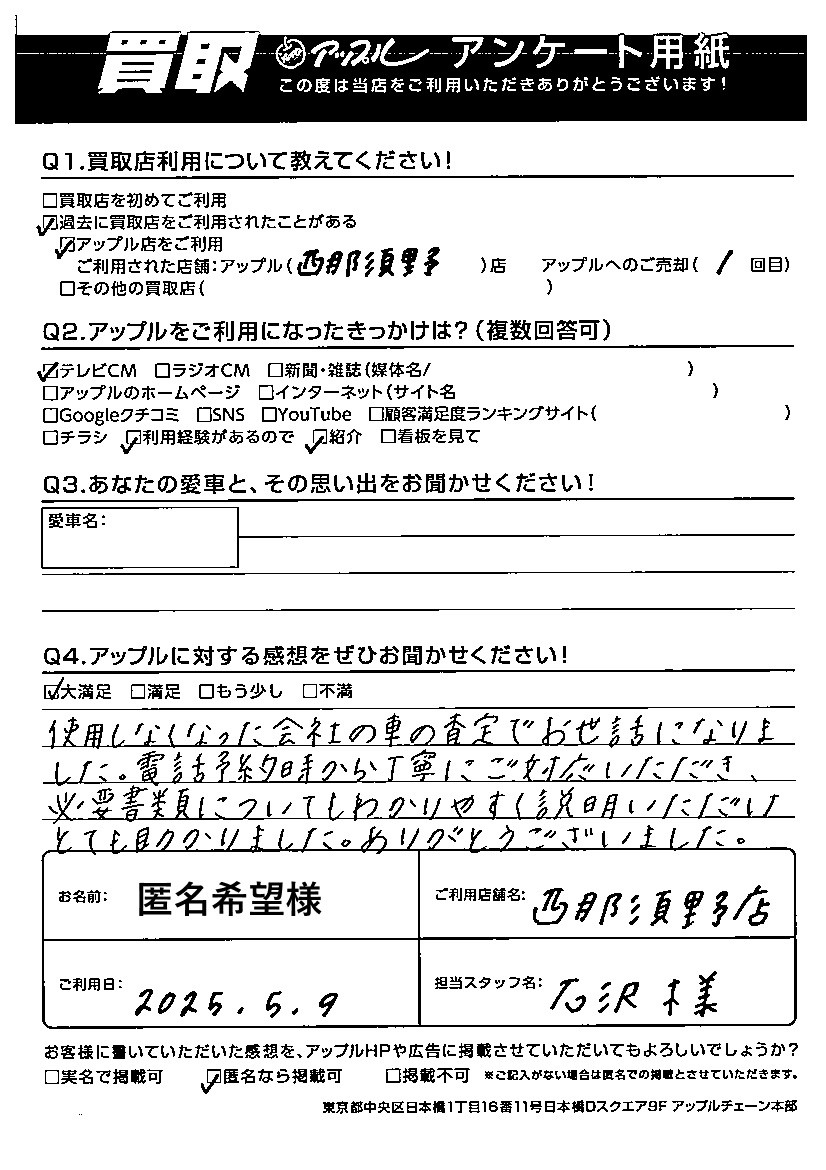 買取 アップル アンケート用紙
この度は当店をご利用いただきありがとうございます!
Q1.買取店利用について教えてください!
□買取店を初めてご利用
☑過去に買取店をご利用されたことがある
☑アップル店をご利用
ご利用された店舗:アップル(西那須野 )店 アップルへのご売却( 1 回目)
□その他の買取店( )
Q2.アップルをご利用になったきっかけは?(複数回答可)
☑テレビCM □ラジオCM □新聞・雑誌(媒体名/ )
□アップルのホームページ □インターネット(サイト名 )
□Googleクチコミ □SNS □YouTube □顧客満足度ランキングサイト( )
□チラシ ☑利用経験があるので ☑紹介 □看板を見て
Q3.あなたの愛車と、その思い出をお聞かせください!
愛車名:
Q4.アップルに対する感想をぜひお聞かせください!
☑大満足 □満足 □もう少し □不満
使用しなくなった会社の車の査定でお世話になりま
した。電話予約時から丁寧にご対応いただき、
必要書類についてもわかりやすく説明いただけ
とても助かりました。ありがとうございました。
お名前: 匿名希望様 ご利用店舗名: 西那須野店
ご利用日: 2025.5.9 担当スタッフ名: 石沢 様
お客様に書いていただいた感想を、アップルHPや広告に掲載させていただいてもよろしいでしょうか?
□実名で掲載可 ☑匿名なら掲載可 □掲載不可 ※ご記入がない場合は匿名での掲載とさせていただきます。
東京都中央区日本橋1丁目16番11号日本橋Dスクエア9F アップルチェーン本部